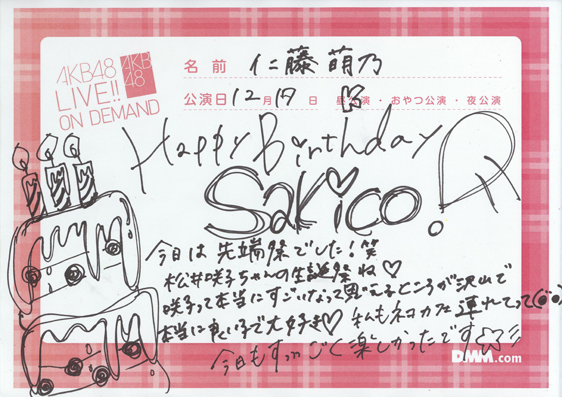 AKB48
LIVE!!
ON DEMAND
AKB
48
名前 仁藤萌乃
公演日 12月19日 昼公演・おやつ公演・夜公演
Happy Birthday
Sakico!
今日は先端祭でした！笑
松井咲子ちゃんの生誕祭ね♡
咲子って本当にすごいなって思えるところが沢山で
本当に良い子で大好き♡ 私もネコカフェ連れてって
今日もすっごく楽しかったです☆彡
DMM.com